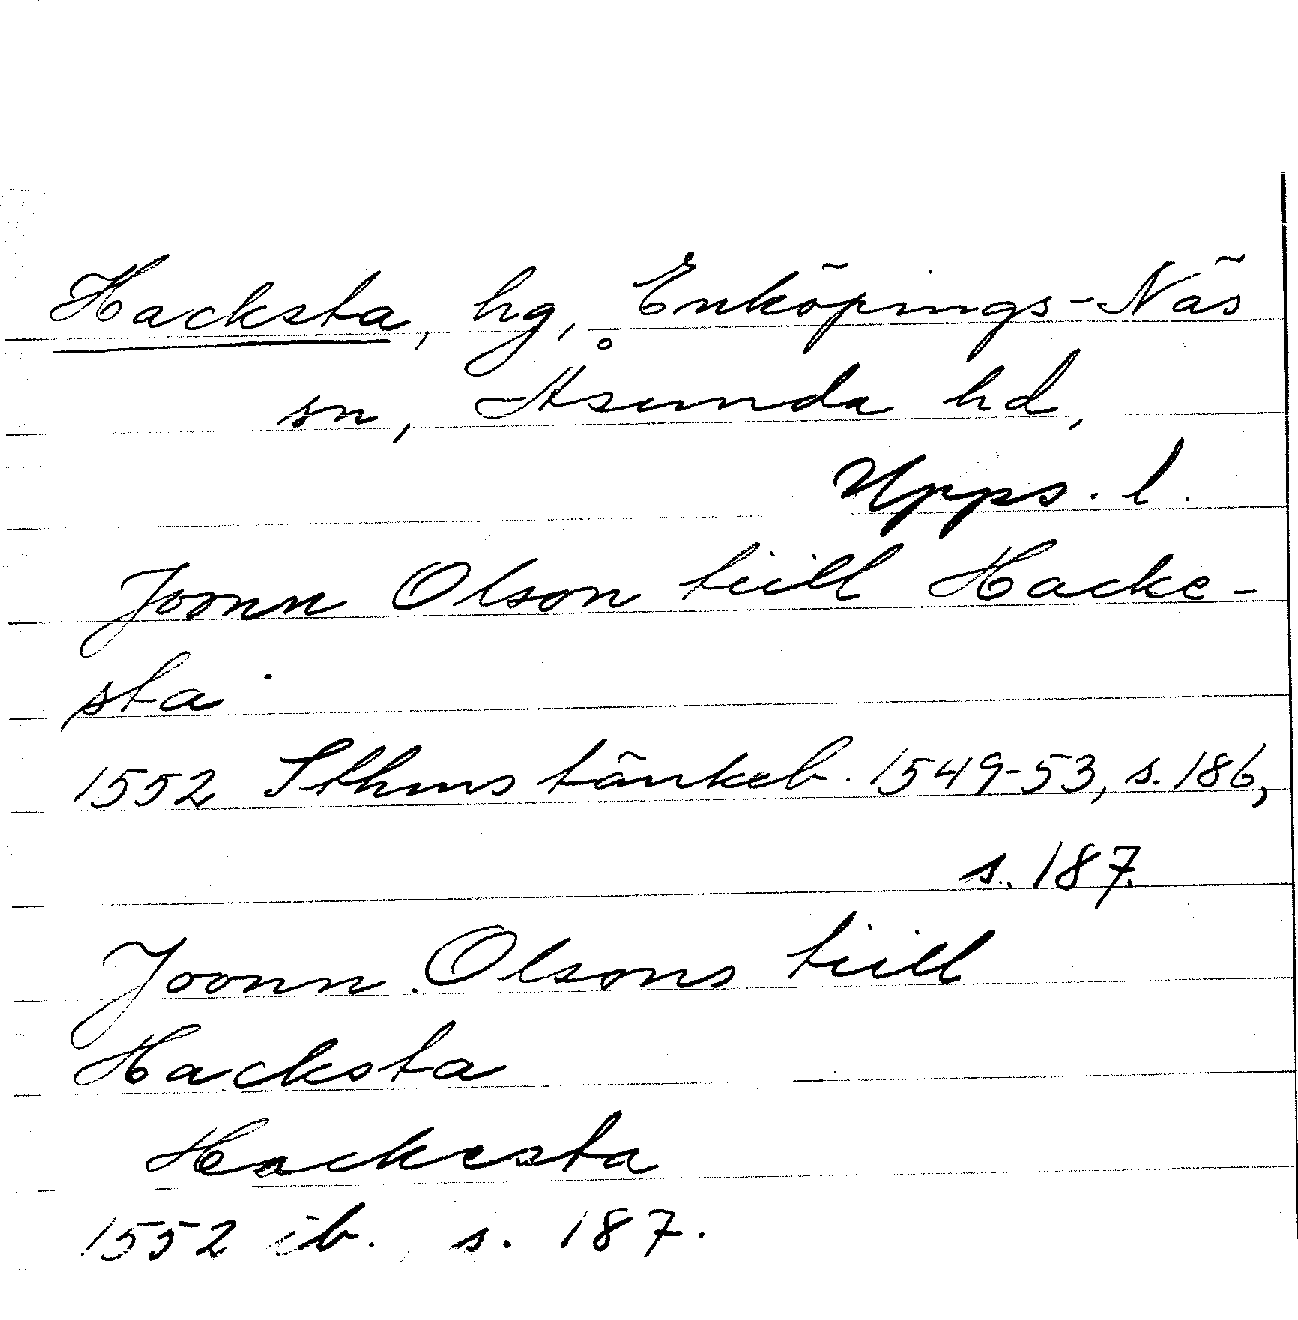 Hacksta, hg, Enköpings-Näs
sn, Åsunda hd,
Upps. l.
Joonn Olson tiill Hacke-
sta
1552 Sthms tänkeb. 1549-53, s. 186,
s. 187.
Joonn Olsons tiill
Hacksta
Hackesta
1552 ib., s. 187.